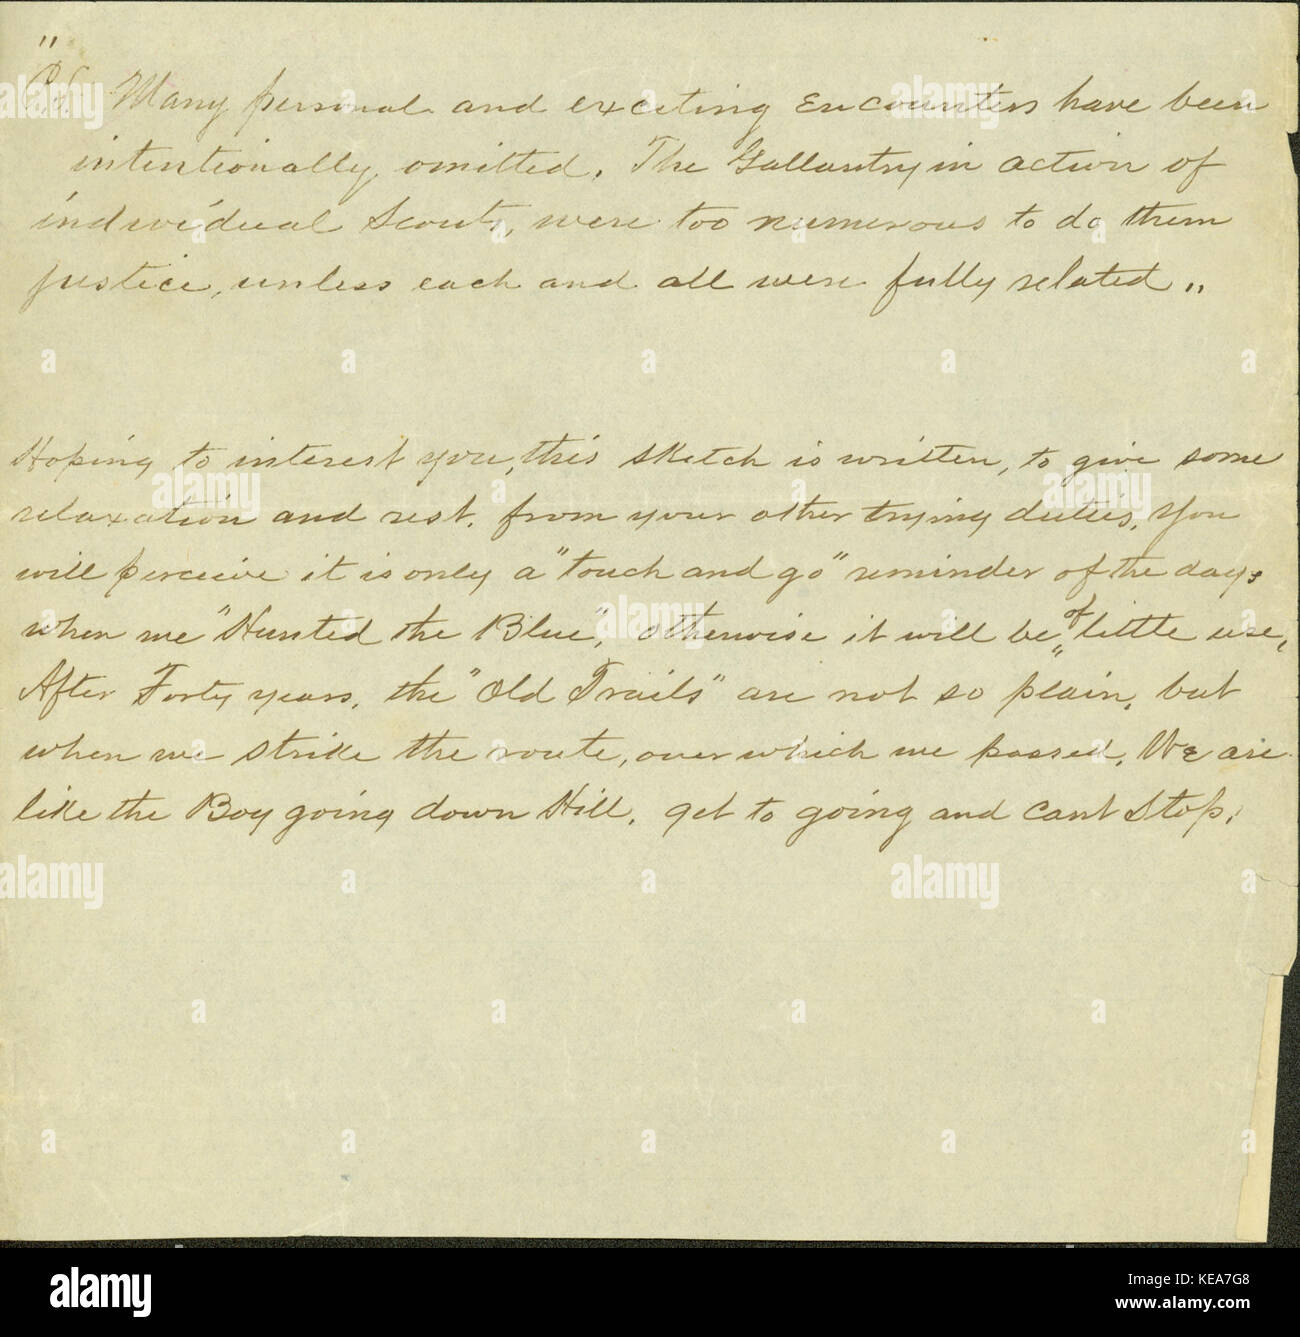 "
P.S. Many personal and exciting Encounters have been
intentionally omitted. The Gallantry in action of
individual Scouts, were too numerous to do them
justice, unless each and all were fully related. "
Hoping to interest you, this sketch is written, to give some
relaxation and rest, from your other trying duties. You
will perceive it is only a "touch and go" reminder of the days
when we "Hunted the Blue", otherwise it will be of little use,
After Forty years, the "Old Trails" are not so plain, but
when we strike the route, over which we passed, We are
like the Boy going down Hill, get to going and cant Stop.
alamy
Image ID: KEA7G8
www.alamy.com